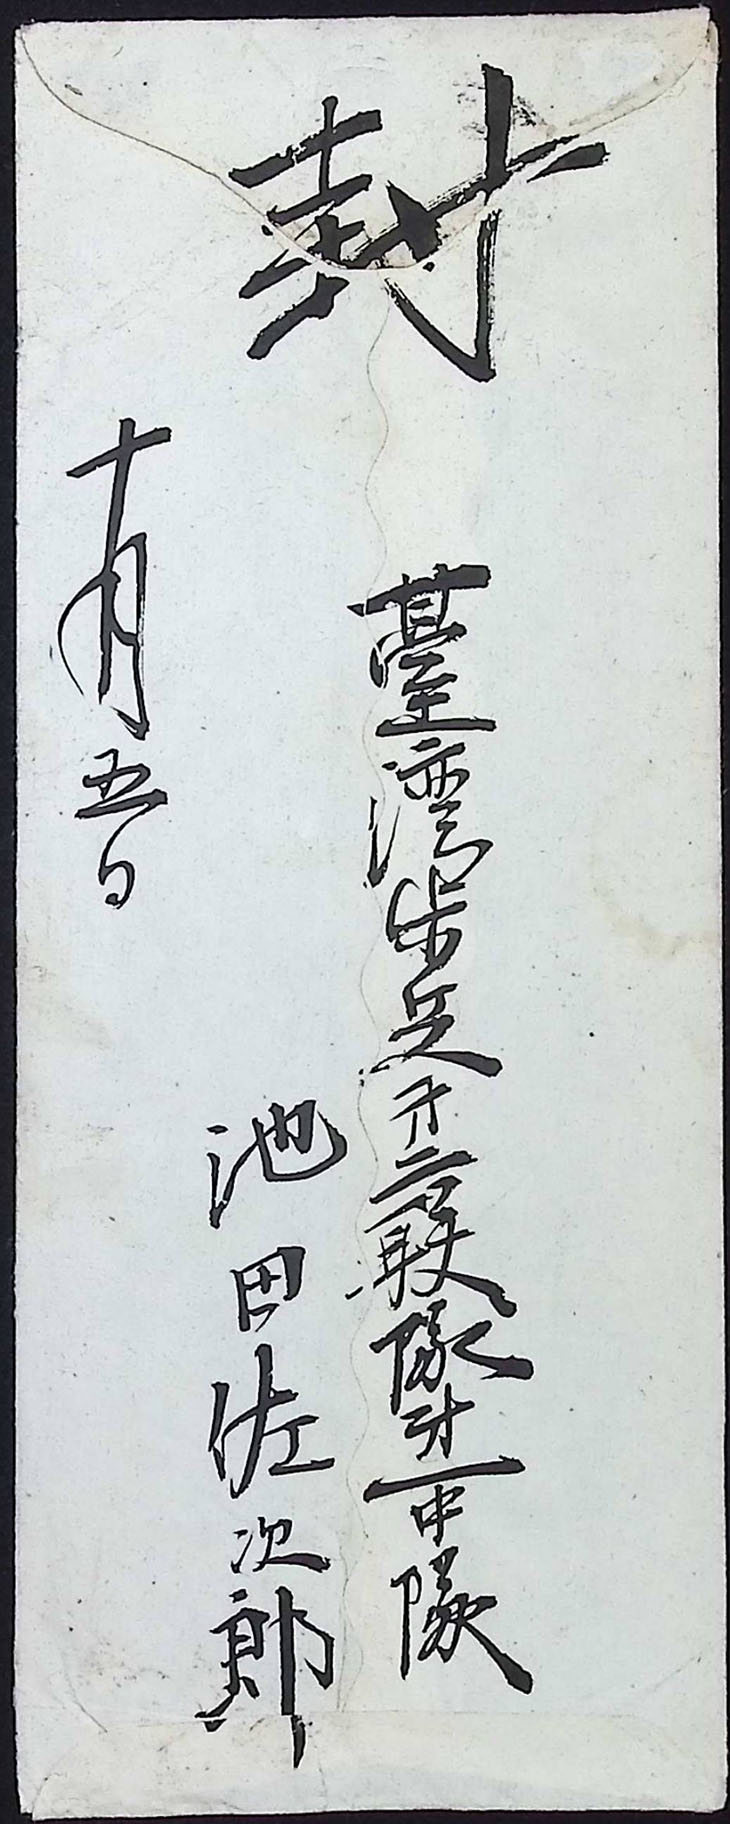 封
臺湾歩兵才二联隊才一中隊
池田佐次郎
十月五日